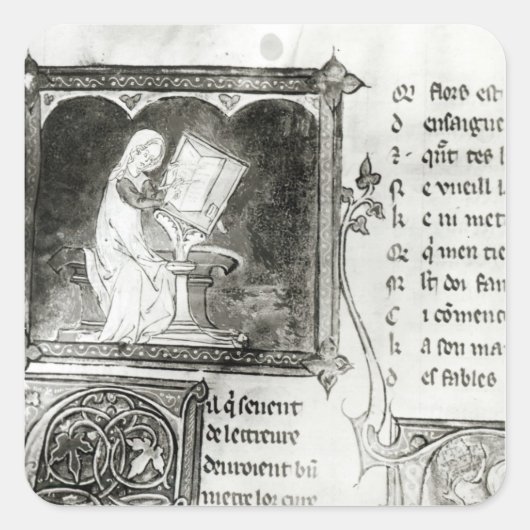 il q̃ seuent
de lettreure
deuroient bn̄
metre lor cure
M flors est
D ensaigne
Z q̃nt tes l
N e vueill l
K e ni met
M q̃ men tie
M lt̃ doi fair
C i cõmenc
K a son ma
D es fables